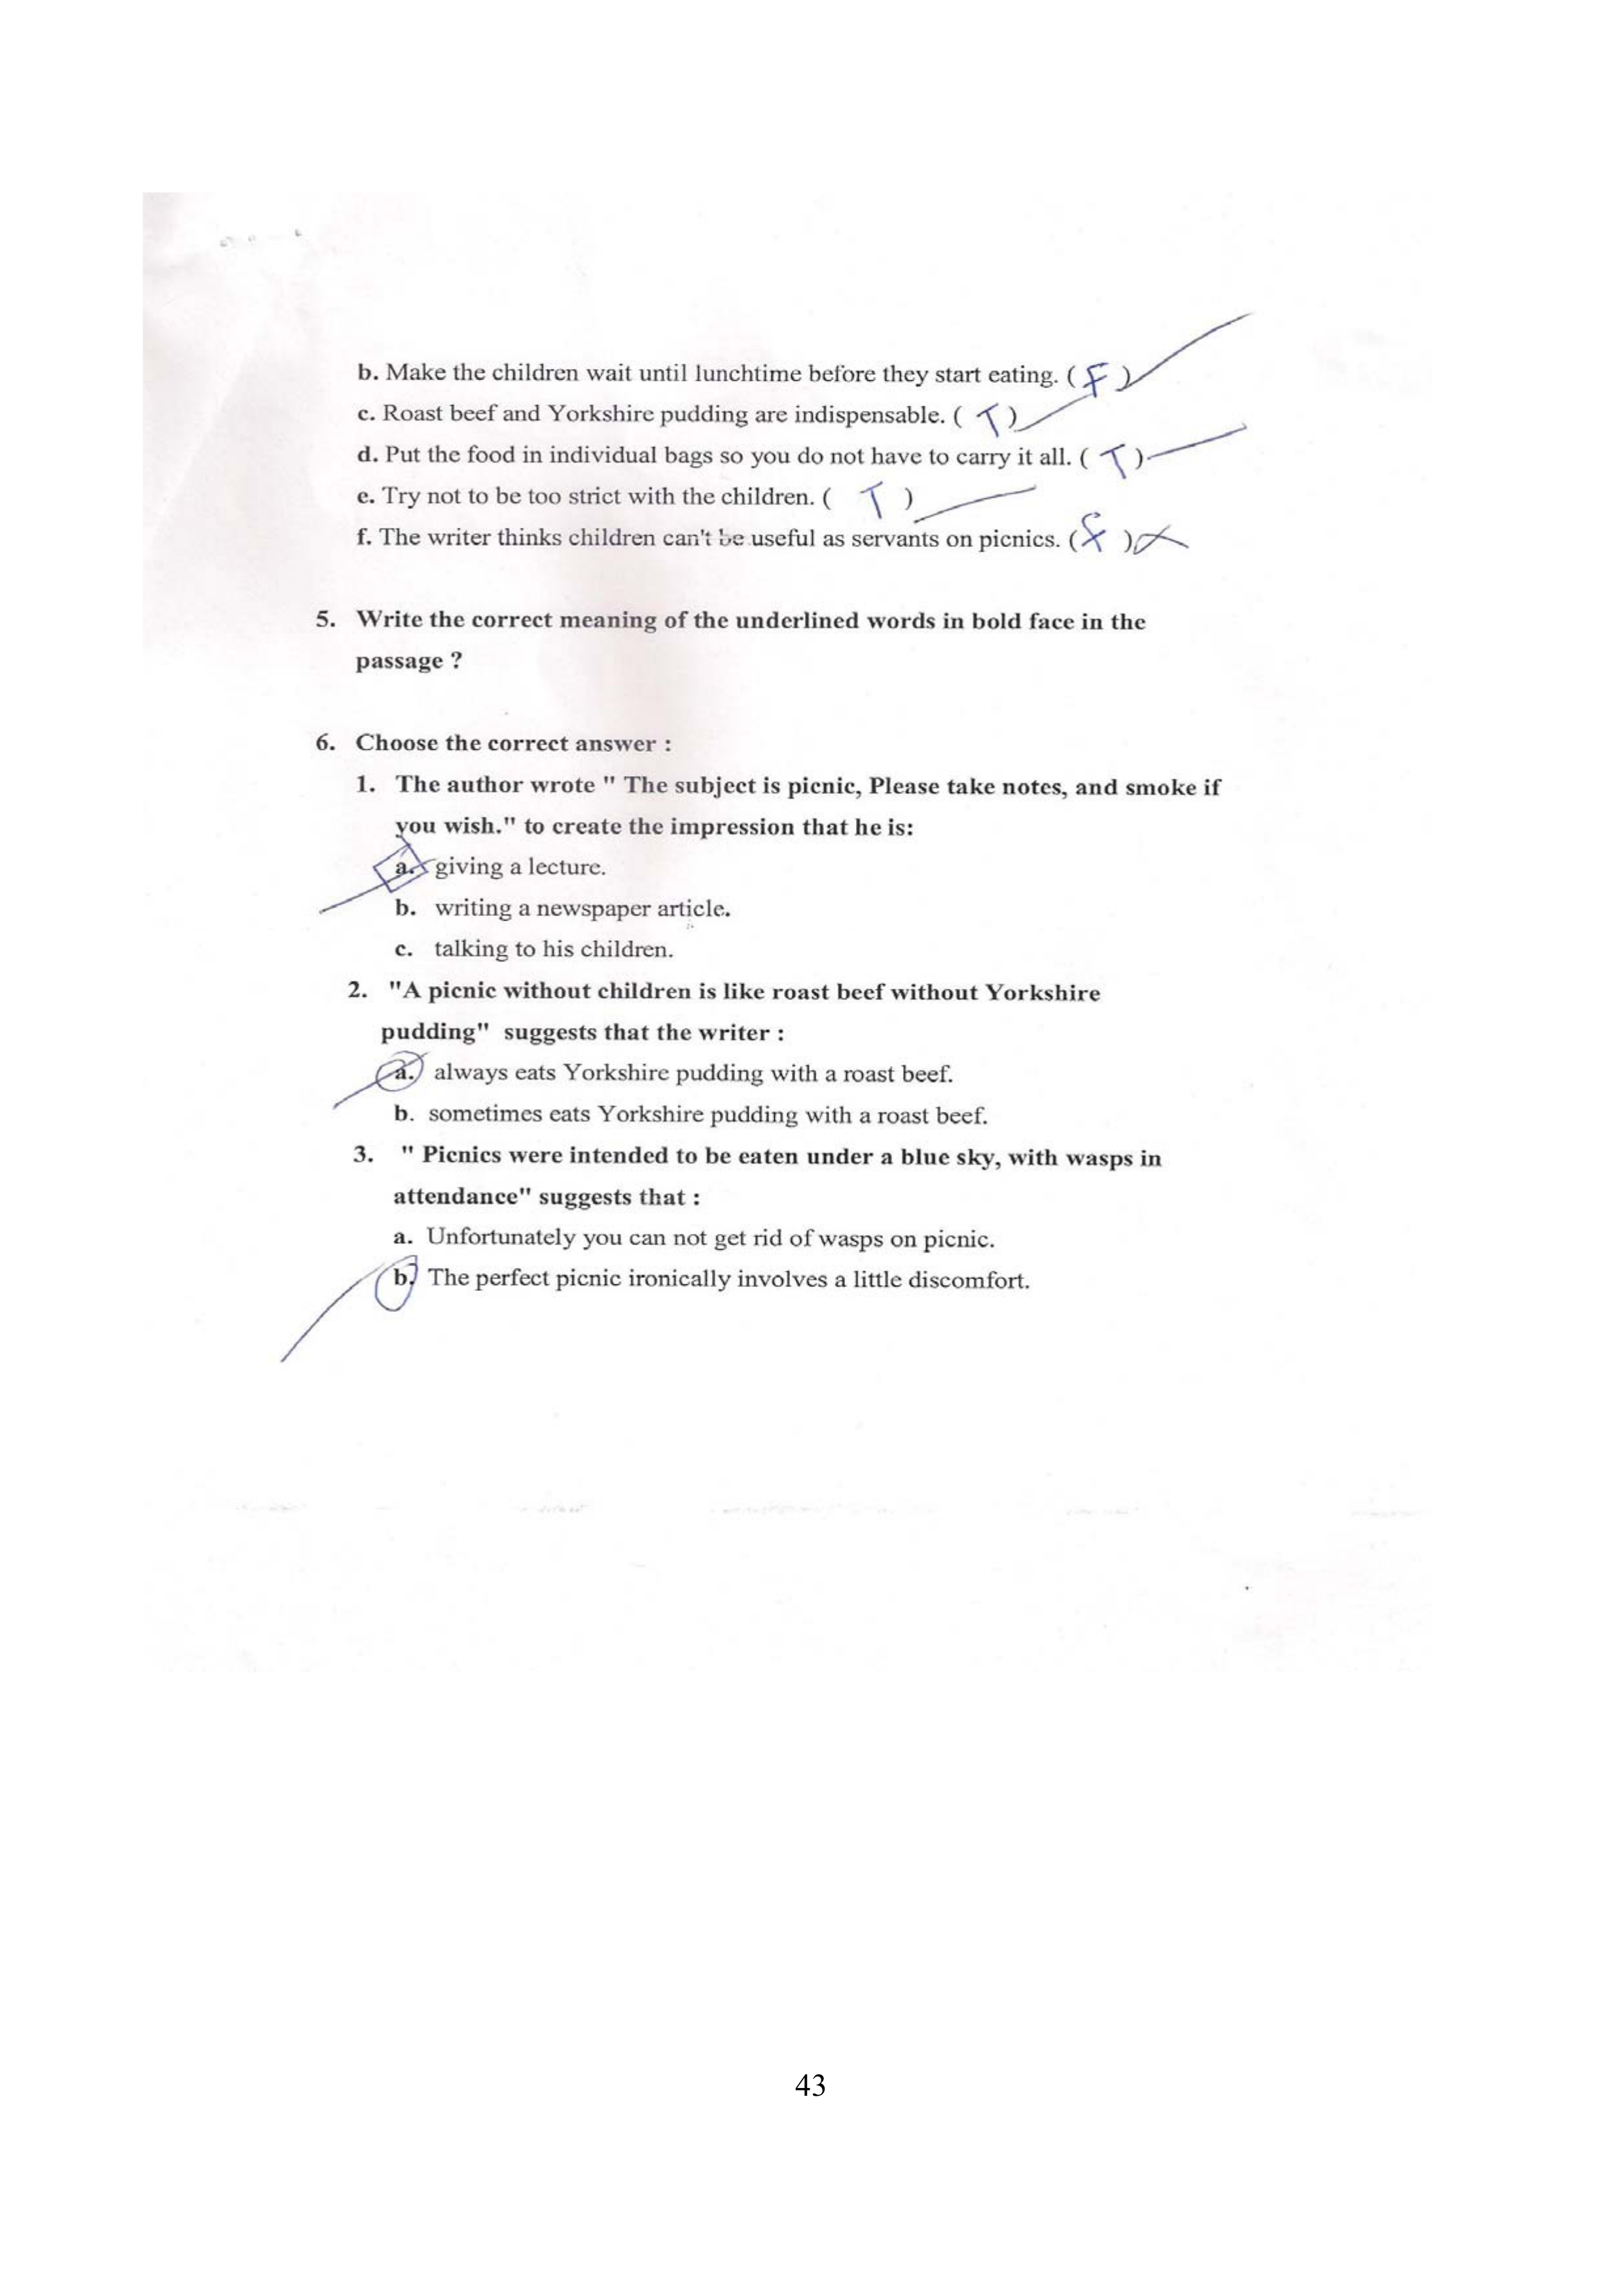 b. Make the children wait until lunchtime before they start eating. ( F )
c. Roast beef and Yorkshire pudding are indispensable. ( T )
d. Put the food in individual bags so you do not have to carry it all. ( T )
e. Try not to be too strict with the children. ( T )
f. The writer thinks children can't be useful as servants on picnics. ( F )
5. Write the correct meaning of the underlined words in bold face in the
passage ?
6. Choose the correct answer :
1. The author wrote " The subject is picnic, Please take notes, and smoke if
you wish." to create the impression that he is:
a. giving a lecture.
b. writing a newspaper article.
c. talking to his children.
2. "A picnic without children is like roast beef without Yorkshire
pudding" suggests that the writer :
a. always eats Yorkshire pudding with a roast beef.
b. sometimes eats Yorkshire pudding with a roast beef.
3. " Picnics were intended to be eaten under a blue sky, with wasps in
attendance" suggests that :
a. Unfortunately you can not get rid of wasps on picnic.
b. The perfect picnic ironically involves a little discomfort.
43